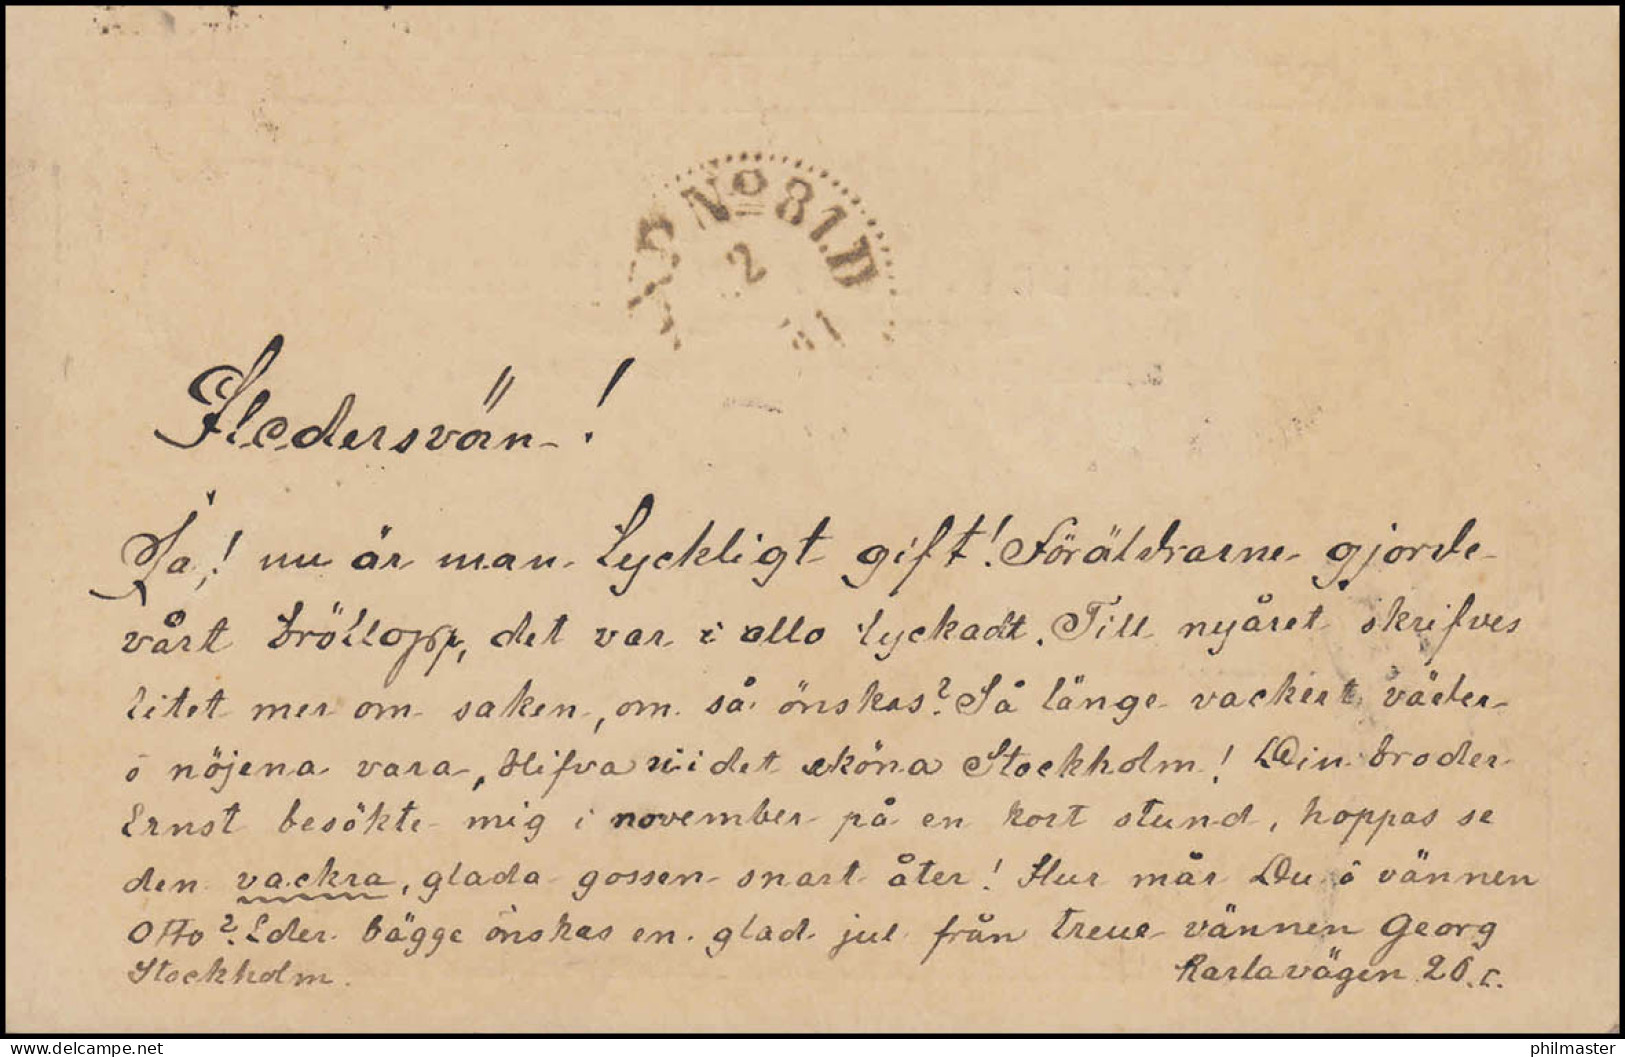 PKXP No 81.D
2
Hedersvän!
Ja! nu är man lyckligt gift! Föräldrarne gjorde
vårt bröllopp, det var i allo lyckadt. Till nyåret skrifves
litet mer om saken, om så önskas? Så länge vackert väder
o nöjena vara, blifva vi i det sköna Stockholm! Din broder
Ernst besökte mig i november på en kort stund, hoppas se
den vackra, glada gossen snart åter! Hur mår Du o vännen
Otto? Eder bägge önskas en glad jul från treue vännen Georg
Stockholm. Karlavägen 20.c.
philmaster
delcampe.net